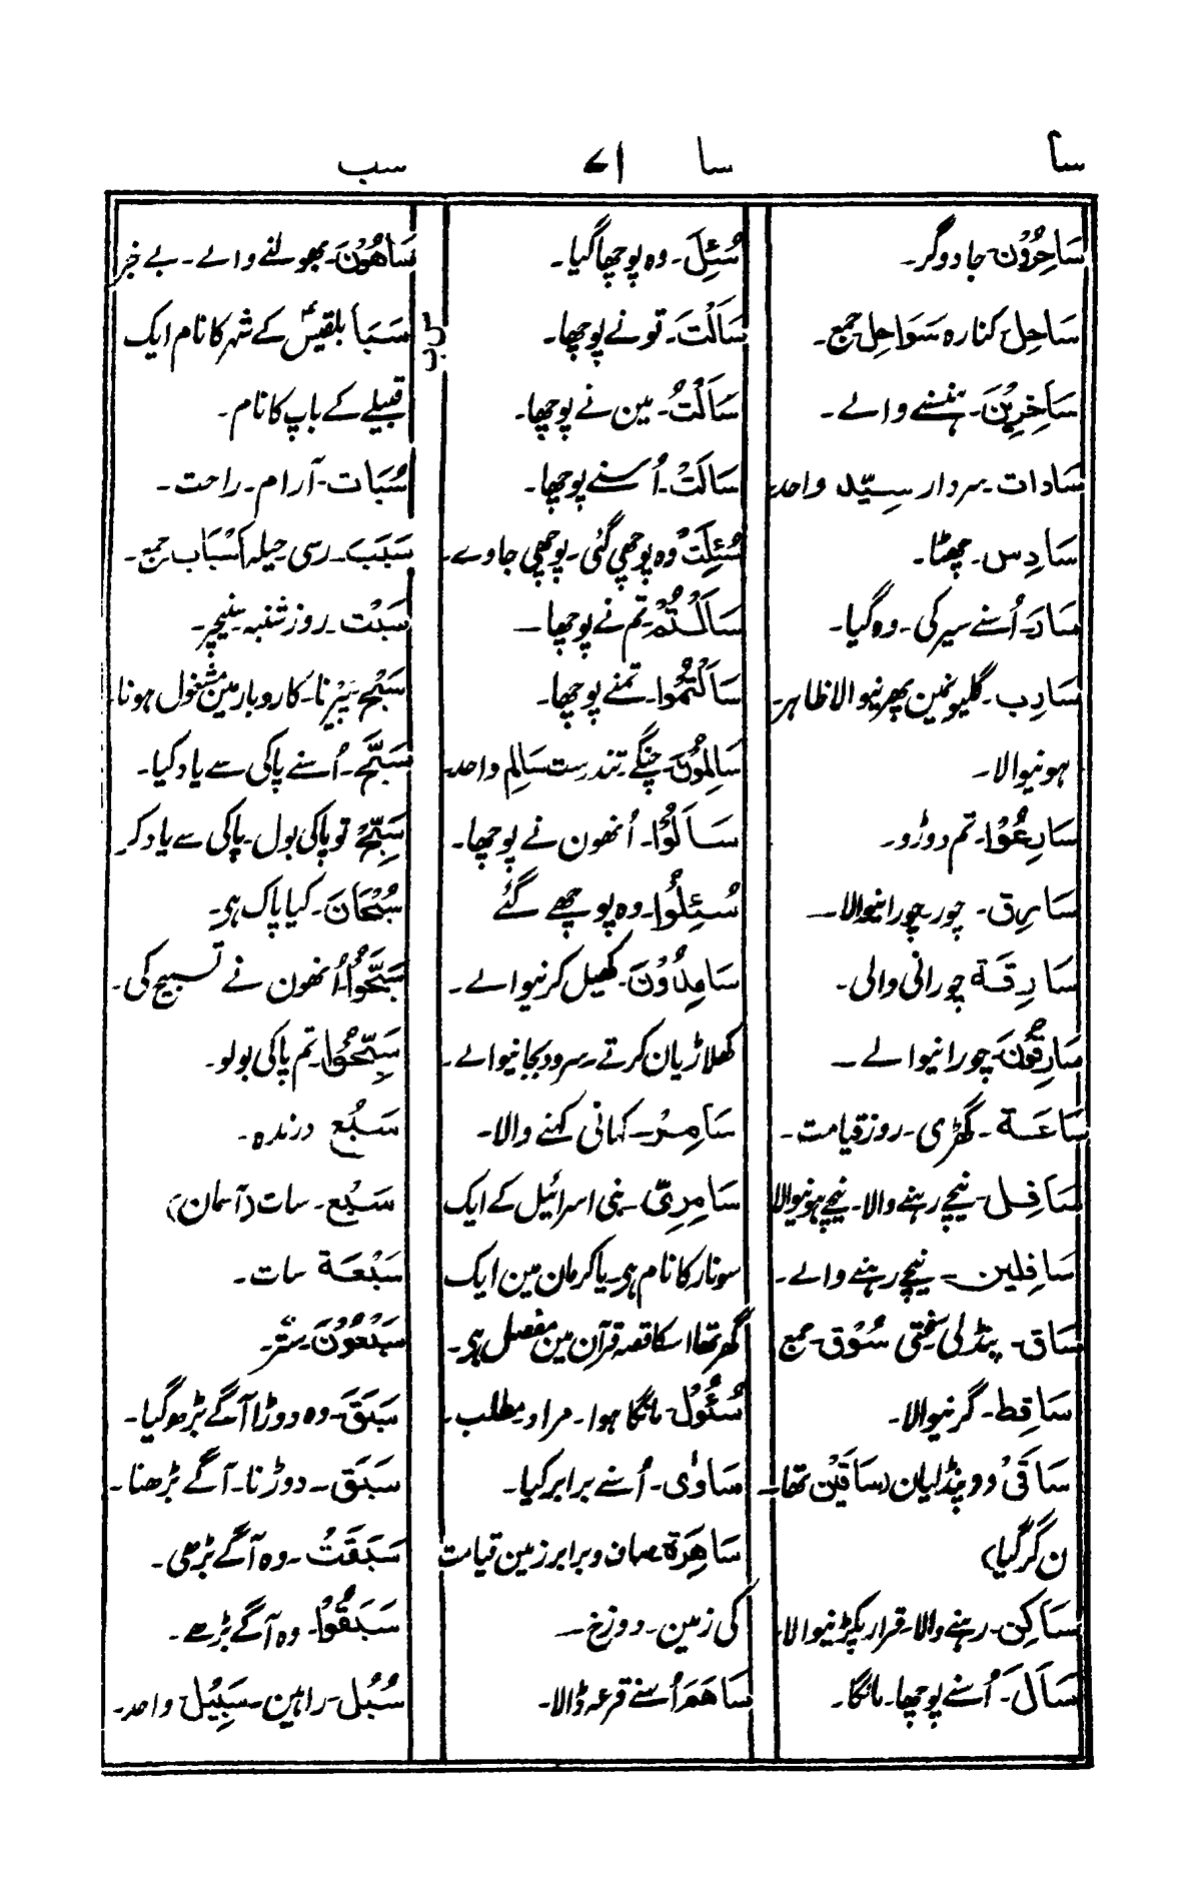 سا
سا
۷۱
سب
سَاحِرُوْن۔ جادوگر۔
سَاحِلْ کنارہ سَوَاحِل جمع۔
سَاخِرِیْنَ۔ ہنسنے والے۔
سَادات۔ سردار سیّد واحد
سَادِس۔ چھٹا۔
سَارَ۔ اُسنے سیر کی۔ وہ گیا۔
سَارِب۔ گلیونمین پھرنیوالا ظاہر
ہونیوالا۔
سَارِعُوْا۔ تم دوڑو۔
سَارِق۔ چور۔ چورانیوالا۔
سَارِقَۃ چورانی والی۔
سَارِقُوْنَ۔ چورانیوالے۔
سَاعَۃ۔ گھڑی۔ روز قیامت۔
سَافِل۔ نیچے رہنے والا۔ نیچے ہونیوالا
سَافِلین۔ نیچے رہنے والے۔
سَاق۔ پنڈلی سختی سُوْق۔ جمع
سَاقِط۔ گرنیوالا۔
سَاقَیْ دو پنڈلیان (سَاقَیْن تھا۔
ن گرگیا)
سَاکِن۔ رہنے والا۔ قرار پکڑنیوالا۔
سَاَلَ۔ اُسنے پوچھا۔ مانگا۔
سُئِلَ۔ وہ پوچھا گیا۔
سَاَلْتَ۔ تو نے پوچھا۔
سَاَلْتُ۔ مین نے پوچھا۔
سَاَلَتْ۔ اُسنے پوچھا۔
سُئِلَتْ وہ پوچھی گئی۔ پوچھی جاوے۔
سَاَلْتُمْ۔ تم نے پوچھا۔
سَاَلْتُمُوا۔ تمنے پوچھا۔
سَالِمُوْنَ۔ چنگے۔ تندرست سَالِم واحد
سَاَلُوْا۔ اُنھون نے پوچھا۔
سُئِلُوْا۔ وہ پوچھے گئے
سَامِدُوْنَ۔ کھیل کرنیوالے۔
کھلاڑیان کرتے۔ سرود بجانیوالے۔
سَامِرْ۔ کہانی کہنے والا۔
سَامِرِیّ۔ بنی اسرائیل کے ایک
سونار کا نام ہی۔ یا کرمان مین ایک
گھر تھا اسکا قصہ قرآن مین مفصل ہی۔
سُئُوْل۔ مانگا ہوا۔ مراد مطلب۔
سَاوٰی۔ اُسنے برابر کیا۔
سَاھِرَۃ صاف و برابر زمین قیامت
کی زمین۔ دوزخ۔
سَاھَمَ اُسنے قرعہ ڈالا۔
سَاھُوْنَ۔ بھولنے والے۔ بے خبر
س ب
سَبَاْ بلقیس کے شہر کا نام ایک
قبیلے کے باپ کا نام۔
سُبَات۔ آرام۔ راحت۔
سَبَبَ۔ رسی حیلہ اَسْبَاب جمع۔
سَبْت۔ روز شنبہ سنیچر۔
سَبْح۔ تَیرنا۔ کاروبار مین مشغول ہونا۔
سَبَّحَ۔ اُسنے پاکی سے یاد کیا۔
سَبِّحْ تو پاکی بول۔ پاکی سے یاد کر
سُبْحَانَ۔ کیا پاک ہی۔
سَبَّحُوْا اُنھون نے تسبیح کی۔
سَبِّحُوْا۔ تم پاکی بولو۔
سَبُع درندہ۔
سَبْع۔ سات (آسمان)
سَبْعَۃ سات۔
سَبْعُوْنَ۔ ستّر۔
سَبَقَ۔ وہ دوڑا آگے بڑھ گیا۔
سَبَق۔ دوڑنا۔ آگے بڑھنا۔
سَبَقَتْ۔ وہ آگے بڑھی۔
سَبَقُوْا۔ وہ آگے بڑھے۔
سُبُل۔ راہین۔ سَبِیْل واحد۔